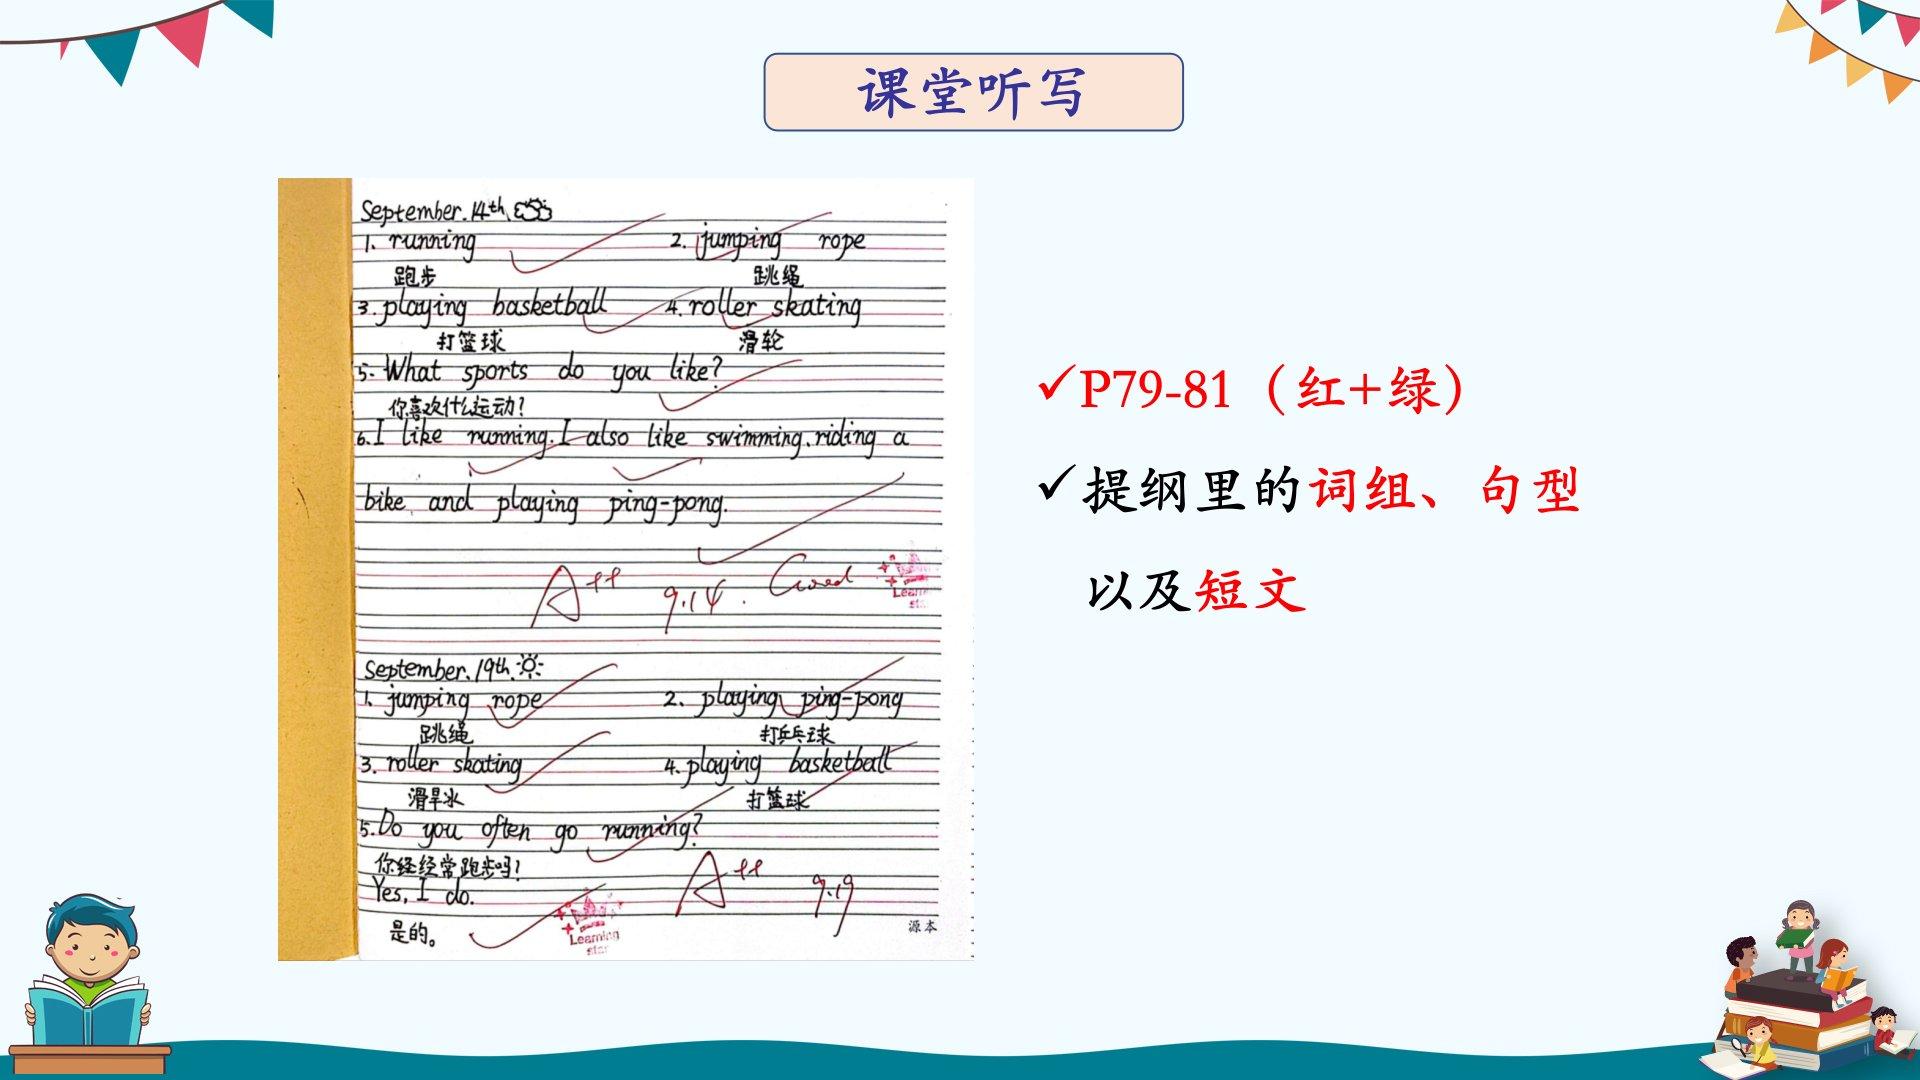 课堂听写
September.14th.
1. running
2. jumping rope
跑步
跳绳
3. playing basketball
4. roller skating
打篮球
滑轮
5. What sports do you like?
你喜欢什么运动?
6. I like running. I also like swimming, riding a
bike and playing ping-pong.
A++ 9.14. Good
Learning
star
September.19th.
1. jumping rope
2. playing ping-pong
跳绳
打乒乓球
3. roller skating
4. playing basketball
滑旱冰
打篮球
5. Do you often go running?
你经经常跑步吗?
Yes, I do.
是的。
A++ 9.19
Learning
star
源本
✓P79-81（红+绿）
✓提纲里的词组、句型
以及短文